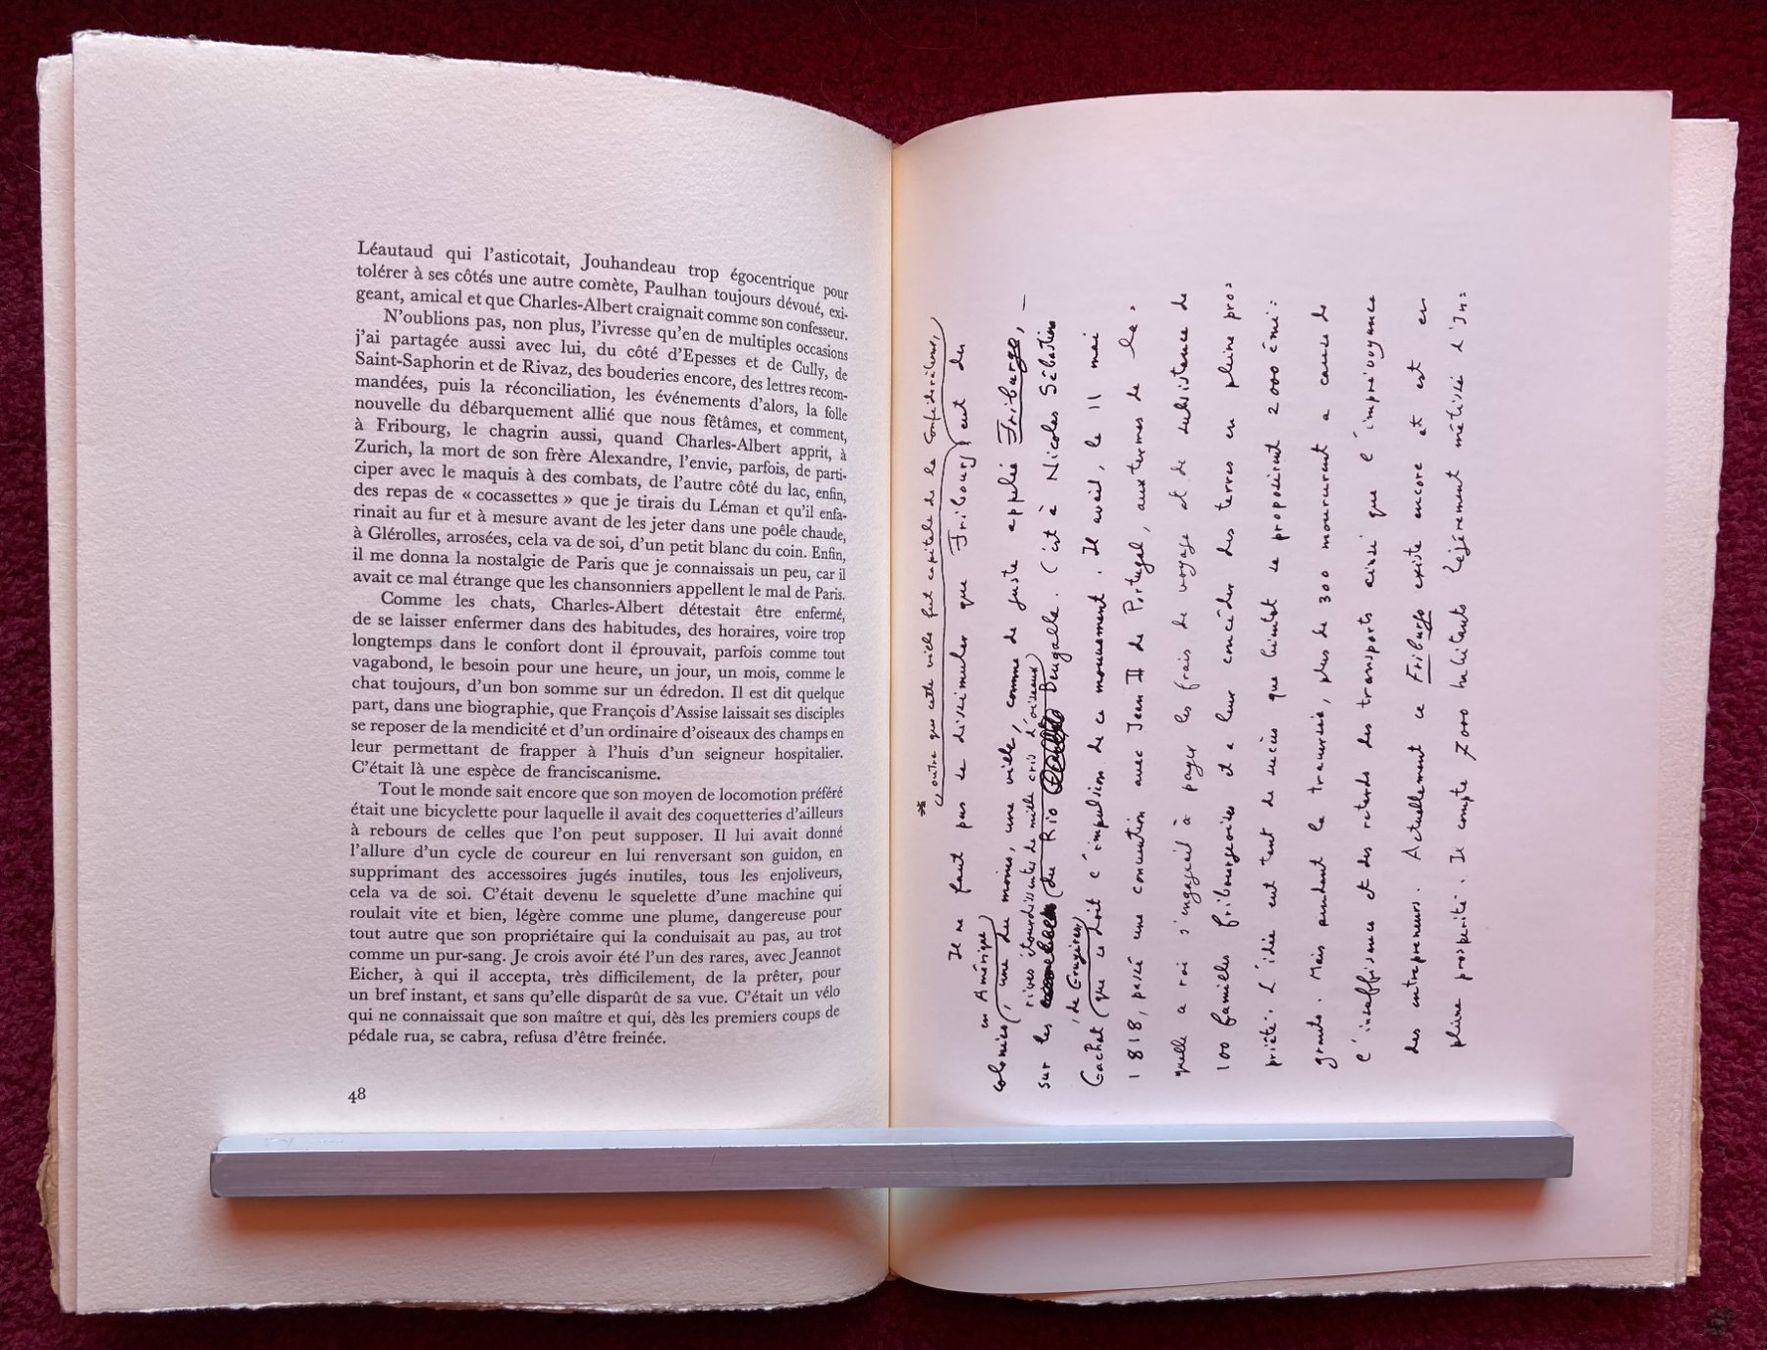 Léautaud qui l'asticotait, Jouhandeau trop égocentrique pour
tolérer à ses côtés une autre comète, Paulhan toujours dévoué, exi-
geant, amical et que Charles-Albert craignait comme son confesseur.
N'oublions pas, non plus, l'ivresse qu'en de multiples occasions
j'ai partagée aussi avec lui, du côté d'Epesses et de Cully, de
Saint-Saphorin et de Rivaz, des bouderies encore, des lettres recom-
mandées, puis la réconciliation, les événements d'alors, la folle
nouvelle du débarquement allié que nous fêtâmes, et comment,
à Fribourg, le chagrin aussi, quand Charles-Albert apprit, à
Zurich, la mort de son frère Alexandre, l'envie, parfois, de parti-
ciper avec le maquis à des combats, de l'autre côté du lac, enfin,
des repas de « cocassettes » que je tirais du Léman et qu'il enfa-
rinait au fur et à mesure avant de les jeter dans une poêle chaude,
à Glérolles, arrosées, cela va de soi, d'un petit blanc du coin. Enfin,
il me donna la nostalgie de Paris que je connaissais un peu, car il
avait ce mal étrange que les chansonniers appellent le mal de Paris.
Comme les chats, Charles-Albert détestait être enfermé,
de se laisser enfermer dans des habitudes, des horaires, voire trop
longtemps dans le confort dont il éprouvait, parfois comme tout
vagabond, le besoin pour une heure, un jour, un mois, comme le
chat toujours, d'un bon somme sur un édredon. Il est dit quelque
part, dans une biographie, que François d'Assise laissait ses disciples
se reposer de la mendicité et d'un ordinaire d'oiseaux des champs en
leur permettant de frapper à l'huis d'un seigneur hospitalier.
C'était là une espèce de franciscanisme.
Tout le monde sait encore que son moyen de locomotion préféré
était une bicyclette pour laquelle il avait des coquetteries d'ailleurs
à rebours de celles que l'on peut supposer. Il lui avait donné
l'allure d'un cycle de coureur en lui renversant son guidon, en
supprimant des accessoires jugés inutiles, tous les enjoliveurs,
cela va de soi. C'était devenu le squelette d'une machine qui
roulait vite et bien, légère comme une plume, dangereuse pour
tout autre que son propriétaire qui la conduisait au pas, au trot
comme un pur-sang. Je crois avoir été l'un des rares, avec Jeannot
Eicher, à qui il accepta, très difficilement, de la prêter, pour
un bref instant, et sans qu'elle disparût de sa vue. C'était un vélo
qui ne connaissait que son maître et qui, dès les premiers coups de
pédale rua, se cabra, refusa d'être freinée.
48
* (outre que cette ville fut capitale de la Confédération,)
Il ne faut pas se dissimuler que Fribourg eut des
en Amérique
colonies, une du moins, une ville, comme de juste applée Friburgo, –
rives étourdissantes de mille cris d'oiseaux
sur les (du Rio Bengalle. C'est à Nicolas Sébastien
, de Gruyères,
Gachet que se doit l'impulsion de ce mouvement. Il avait, le 11 mai
1818, passé une convention avec Jean II de Portugal, aux termes de la-
quelle ce roi s'engageait à payer les frais de voyage et de subsistance de
100 familles fribourgeoises et à leur concéder des terres en pleine pro=
priété. L'idée eut tant de succès que bientôt se proposèrent 2000 émi=
grants. Mais pendant la traversée, plus de 300 moururent à cause de
l'insuffisance et des retards des transports ainsi que l'imprévoyance
des entrepreneurs. Actuellement ce Friburgo existe encore et est en
pleine prospérité. Il compte 7000 habitants légèrement métissé d'In=